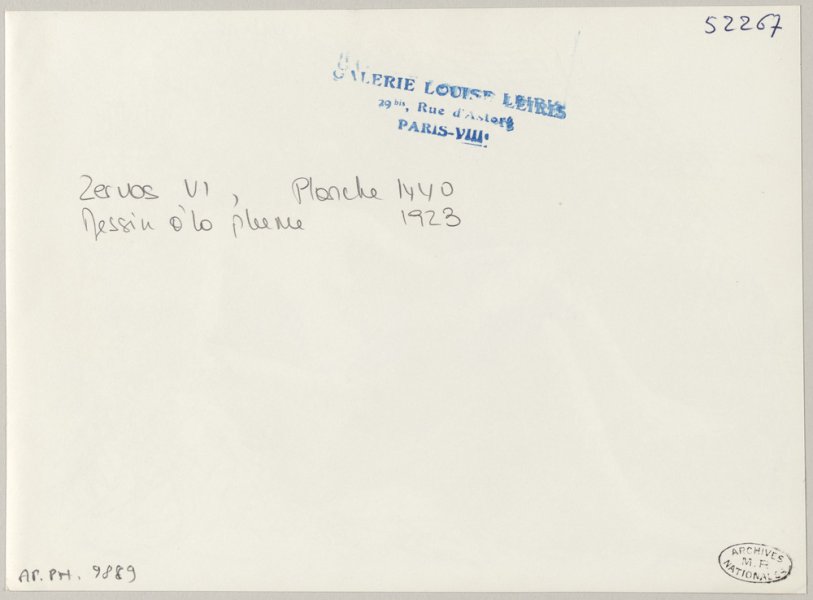 52267
GALERIE LOUISE LEIRIS
29 bis, Rue d'Astorg
PARIS-VIIIe
Zervos VI, Planche 1440
Dessin à la plume 1923
AP. PH. 9889
ARCHIVES
M.P.
NATIONALES